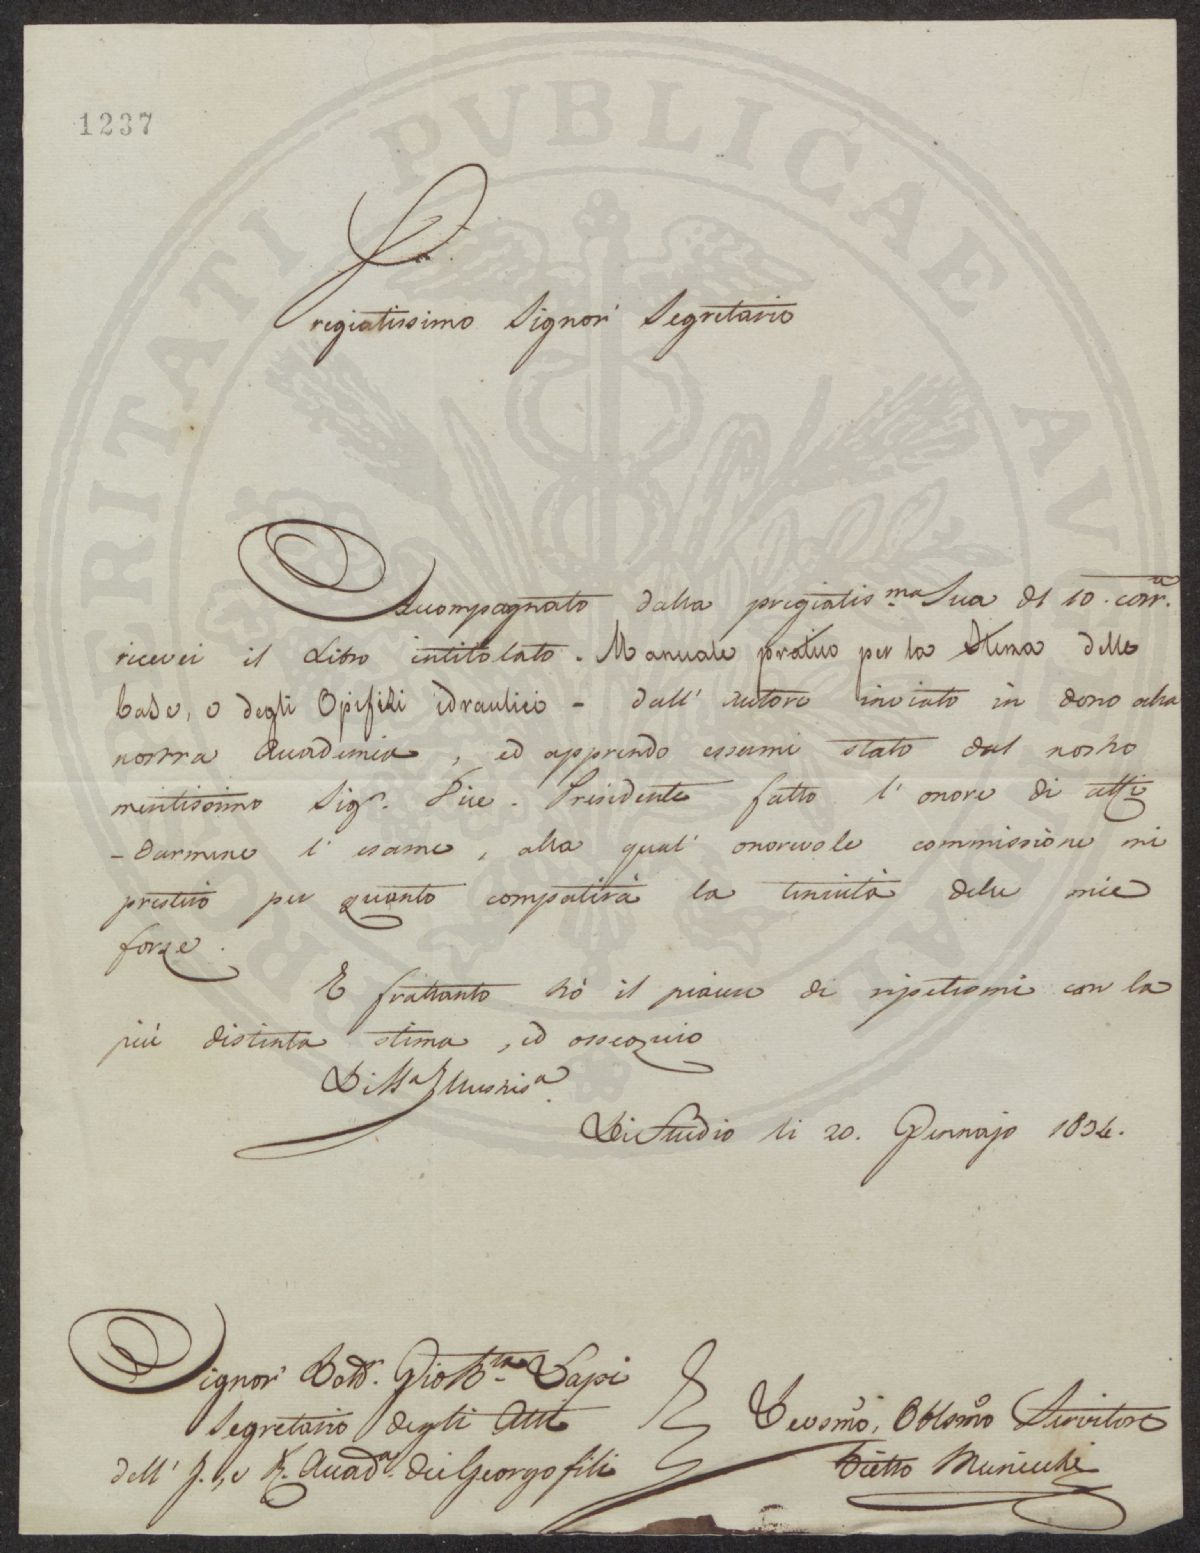 1237
Pregiatissimo Signor Segretario
Accompagnato dalla pregiatis.ma Sua de' 10. corr.
ricevei il Libro intitolato - Manuale pratico per la Stima delle
Case, e degli Opifizi idraulici - dall' Autore inviato in dono alla
nostra Accademia, ed apprendo essermi stato dal nostro
meritissimo Sig.r Vice-Presidente fatto l' onore di affi
-darmene l' esame, alla qual' onorevole commissione mi
presterò per quanto compatirà la tenuità delle mie
forze.
E frattanto hò il piacere di ripetermi con la
più distinta stima, ed ossequio
Di Studio li 20. Gennajo 1834.
Signor Dott. Gio Btta Lapi
Segretario degli Atti
dell' J. e R. Accad.a dei Georgofili
Devosmo, Obblsmo Servitore
Pietro Municchi
PROSPERITATI PVBLICAE AVGENDAE